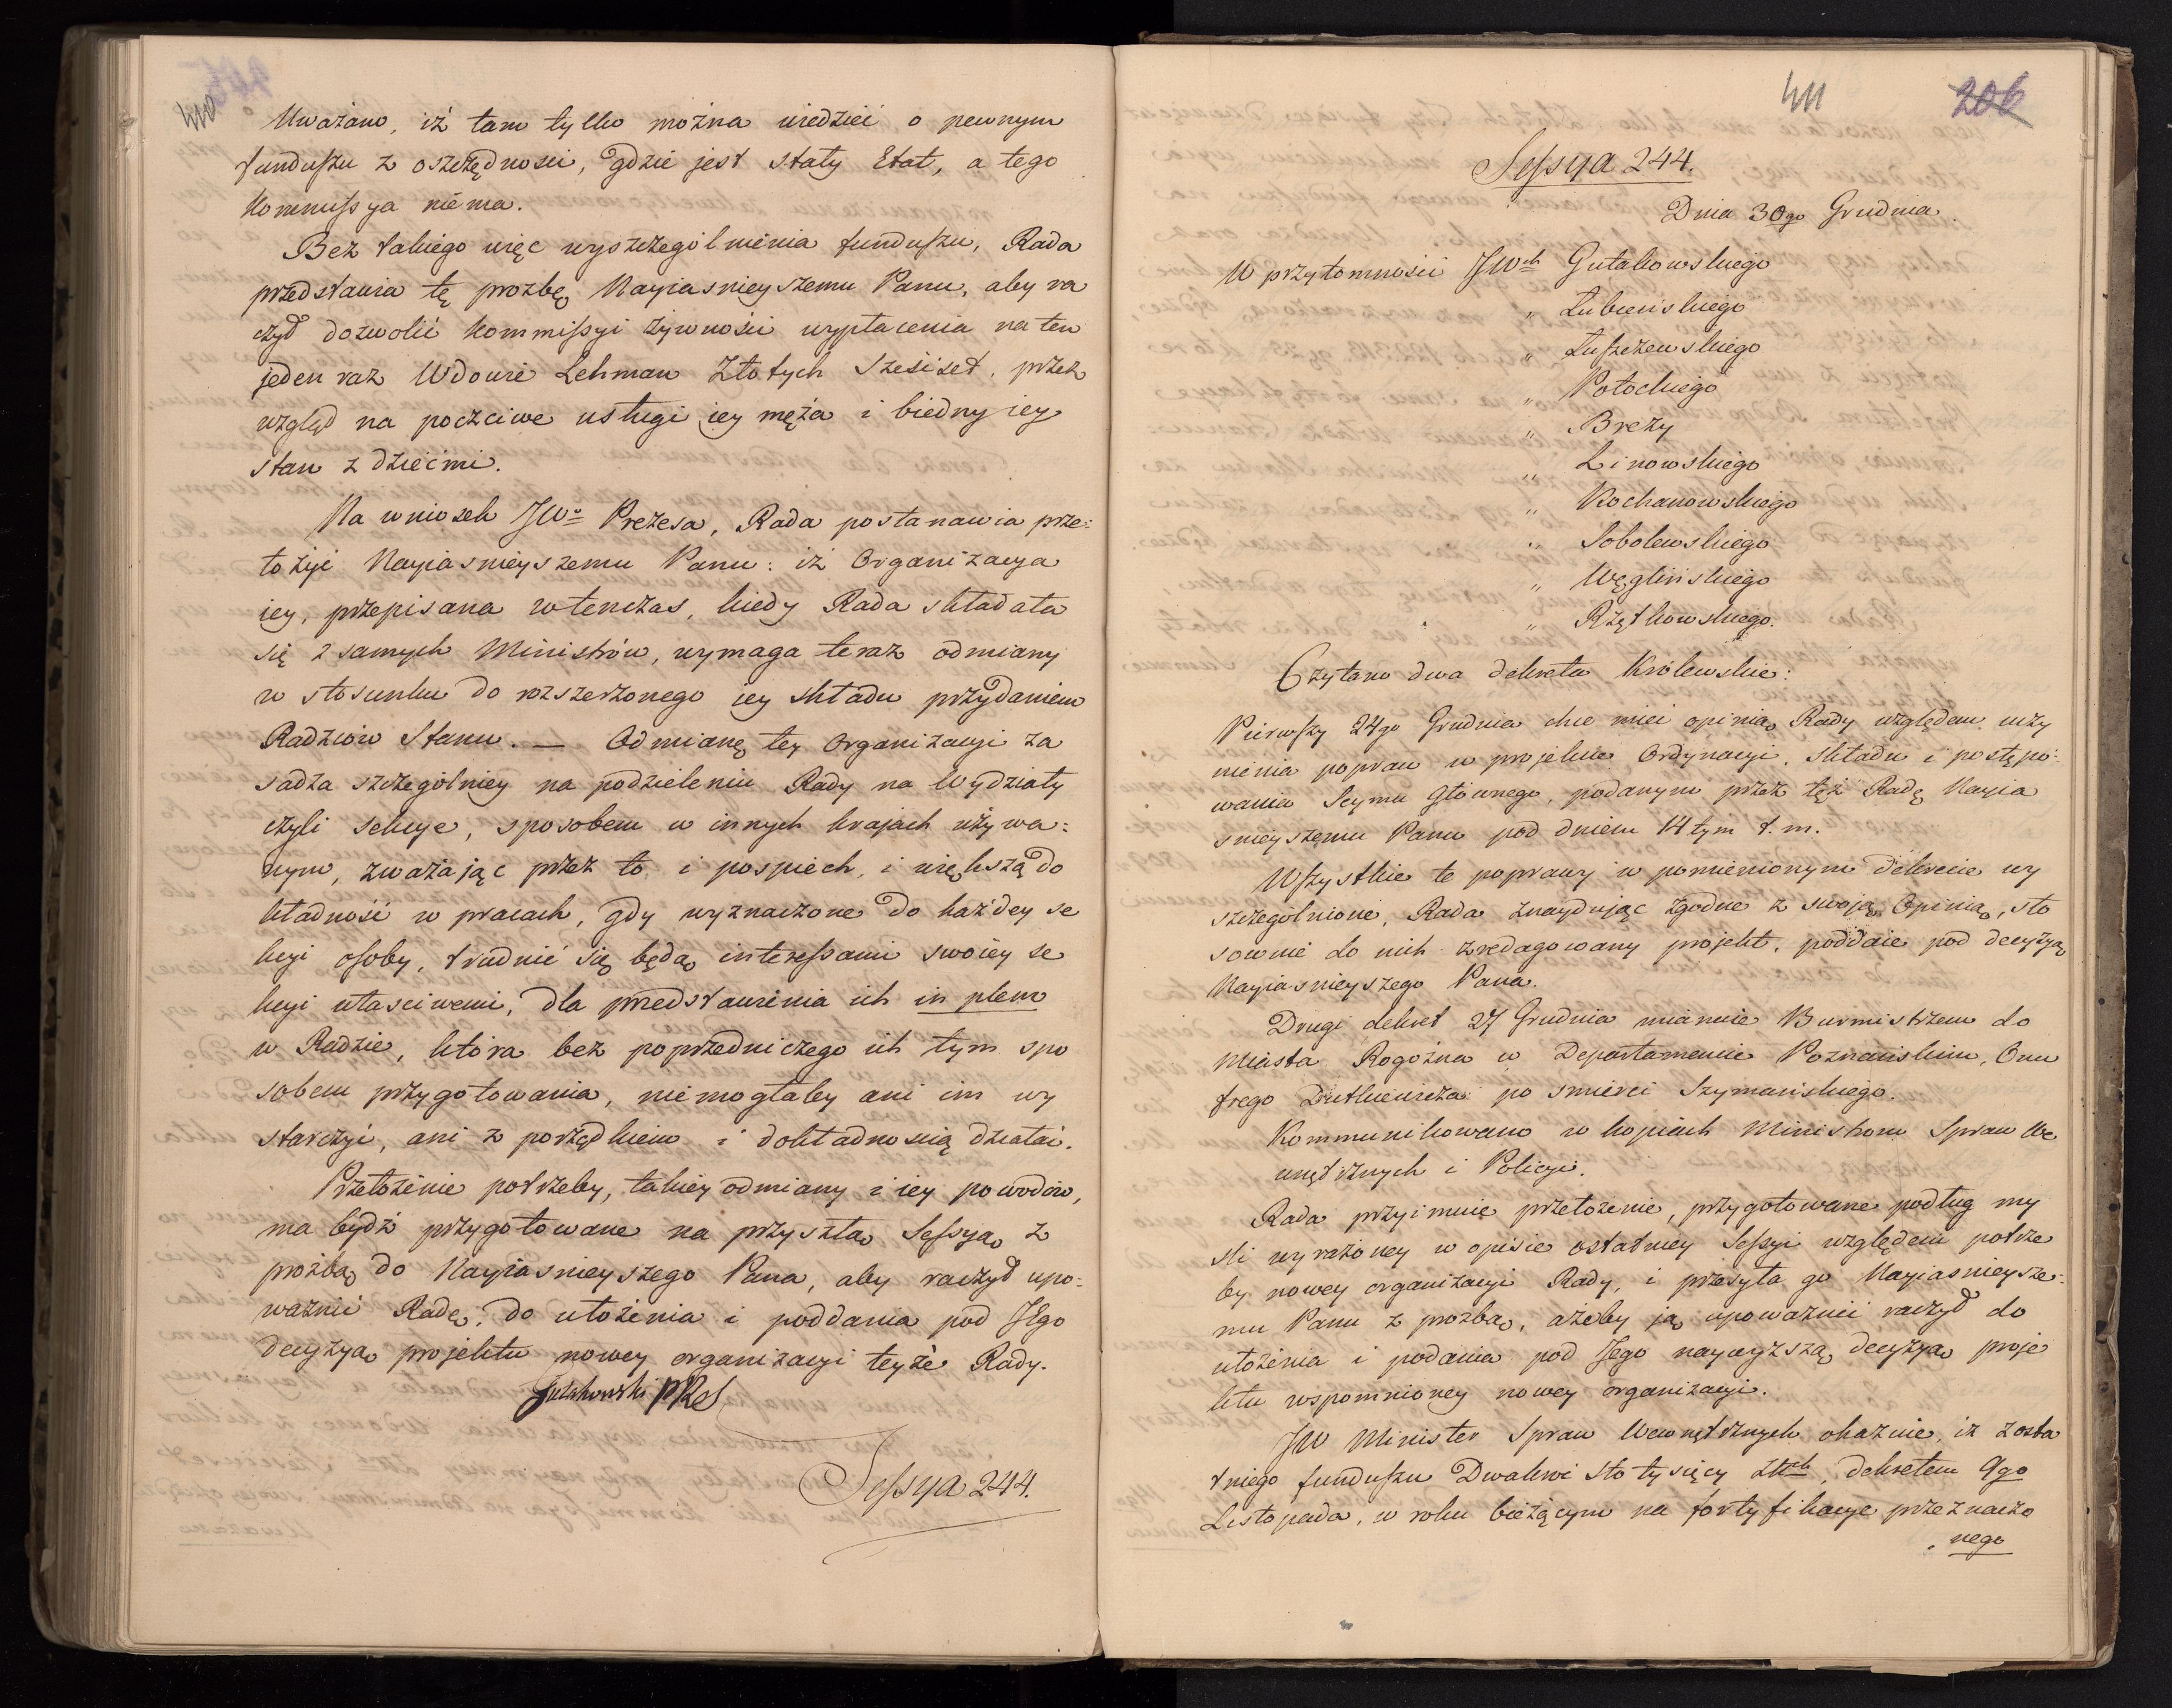 410
Uważano, iż tam tylko można wiedzieć o pewnym
funduszu z oszczędności, gdzie jest stały Etat, a tego
Kommissya niema.
Bez takiego więc wyszczególnienia funduszu, Rada
przedstawia tę prozbę Nayiasnieyszemu Panu, aby ra
czył dozwolić Kommissyi żywności wypłacenia na ten
jeden raz Wdowie Lehman Złotych Sześiset, przez
wzgląd na poczciwe usługi iey męża i biedny iey
stan z dziećmi.
Na wniosek JWo Prezesa, Rada postanawia prze=
łożyć Nayiasnieyszemu Panu: iż Organizacya
iey, przepisana wtenczas, kiedy Rada składała
się z samych Ministrów, wymaga teraz odmiany
w stosunku do rozszerzonego iey składu przydaniem
Radzców Stanu. — Odmianę tey Organizacyi za
sadza szczególniey na podzieleniu Rady na Wydziały
czyli sekcye, sposobem w innych krajach używa=
nym, zważając przez to i pospiech, i większą do
kładność w pracach, gdy wyznaczone do każdey se
kcyi osoby, trudnić się będą interessami swoiey se
kcyi właściwemi, dla przedstawienia ich in pleno
w Radzie, która bez poprzedniczego ich tym spo
sobem przygotowania, niemogłaby ani im wy
starczyć, ani z porządkiem i dokładnością działać.
Przełożenie potrzeby, takiey odmiany i iey powodów,
ma bydź przygotowane na przyszłą Sessyą z
prożbą do Nayiasnieyszego Pana, aby raczył upo=
ważnić Radę, do ułożenia i poddania pod JEgo
decyzyą projektu nowey organizacyi teyże Rady.
Gutakowski PRS
Sessya 244.
411 206
Sessya 244.
Dnia 30go Grudnia.
W przytomności JWch Gutakowskiego
" Łubieńskiego
" Łuszczewskiego
" Potockiego
" Brezy
" Linowskiego
" Kochanowskiego
" Sobolewskiego
" Węglińskiego
" Rzętkowskiego.
Czytano dwa dekreta Królewskie:
Pierwszy 24go Grudnia chce mieć opinią Rady względem uczy
nienia popraw w projekcie Ordynacyi, składu i postępo=
wania Seymu Głównego, podanym przez też Radę Nayia
snieyszemu Panu pod dniem 14tym t.m.
Wszystkie te poprawy w pomienionym dekrecie wy
szczególnione, Rada znayduiąc zgodne z swoją Opinią, sto
sownie do nich zredagowany projekt, poddaie pod decyzyą
Nayiasnieyszego Pana.
Drugi dekret 27 Grudnia mianuie Burmistrzem do
Miasta Rogoźna w Departamencie Poznańskim, Onu
frego po smierci Szymańskiego.
Kommunikowano w kopiach Ministrom Spraw We
wnętrznych i Policyi.
Rada przyimuie przełożenie, przygotowane podług my
sli wyrażoney w opisie ostatniey Sessyi względem potrze
by nowey organizacyi Rady, i przesyła go Nayiasnieysze=
mu Panu z prozbą, ażeby ją upoważnić raczył do
ułożenia i podania pod Jego naywyższą decyzyą proje
ktu wspomnioney nowey organizacyi.
JW Minister Spraw Wewnętrznych okazuie, iż z osta
tniego funduszu Dwakroć sto tysięcy Złch, dekretem 9go
Listopada, w roku bieżącym na fortyfikacye przeznaczo
nego